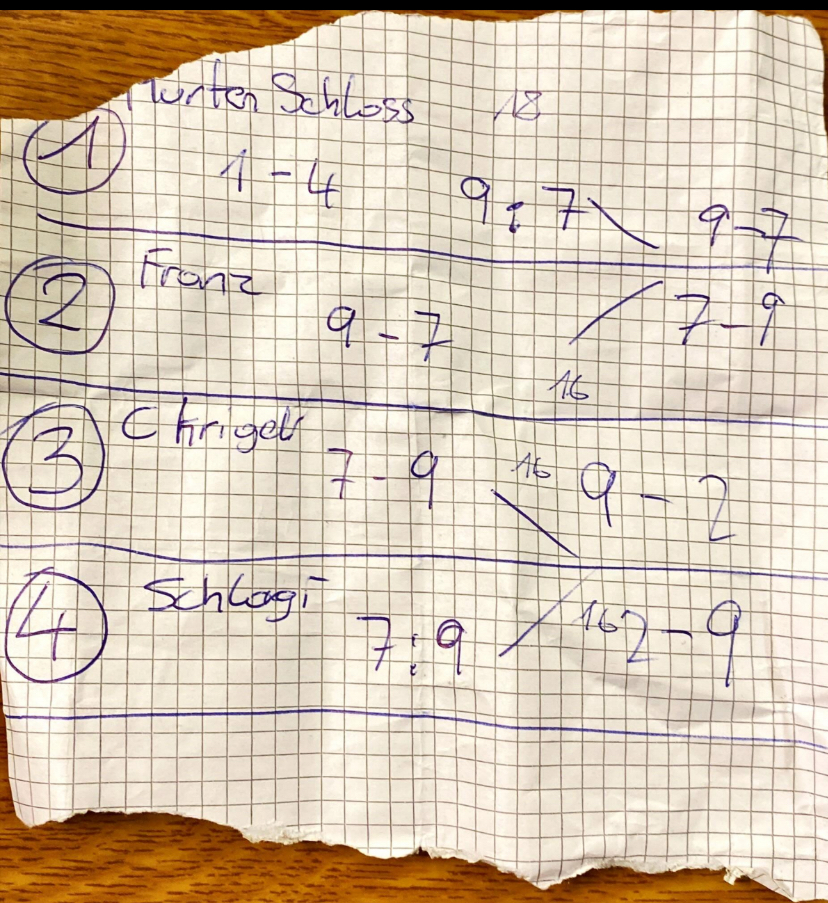 Murten Schloss 18
1 1-4 9:7 9-7
2 Franz 9-7 7-9
16
3 Chrigel 7-9 16 9-2
4 Schlagi 7:9 16 2-9